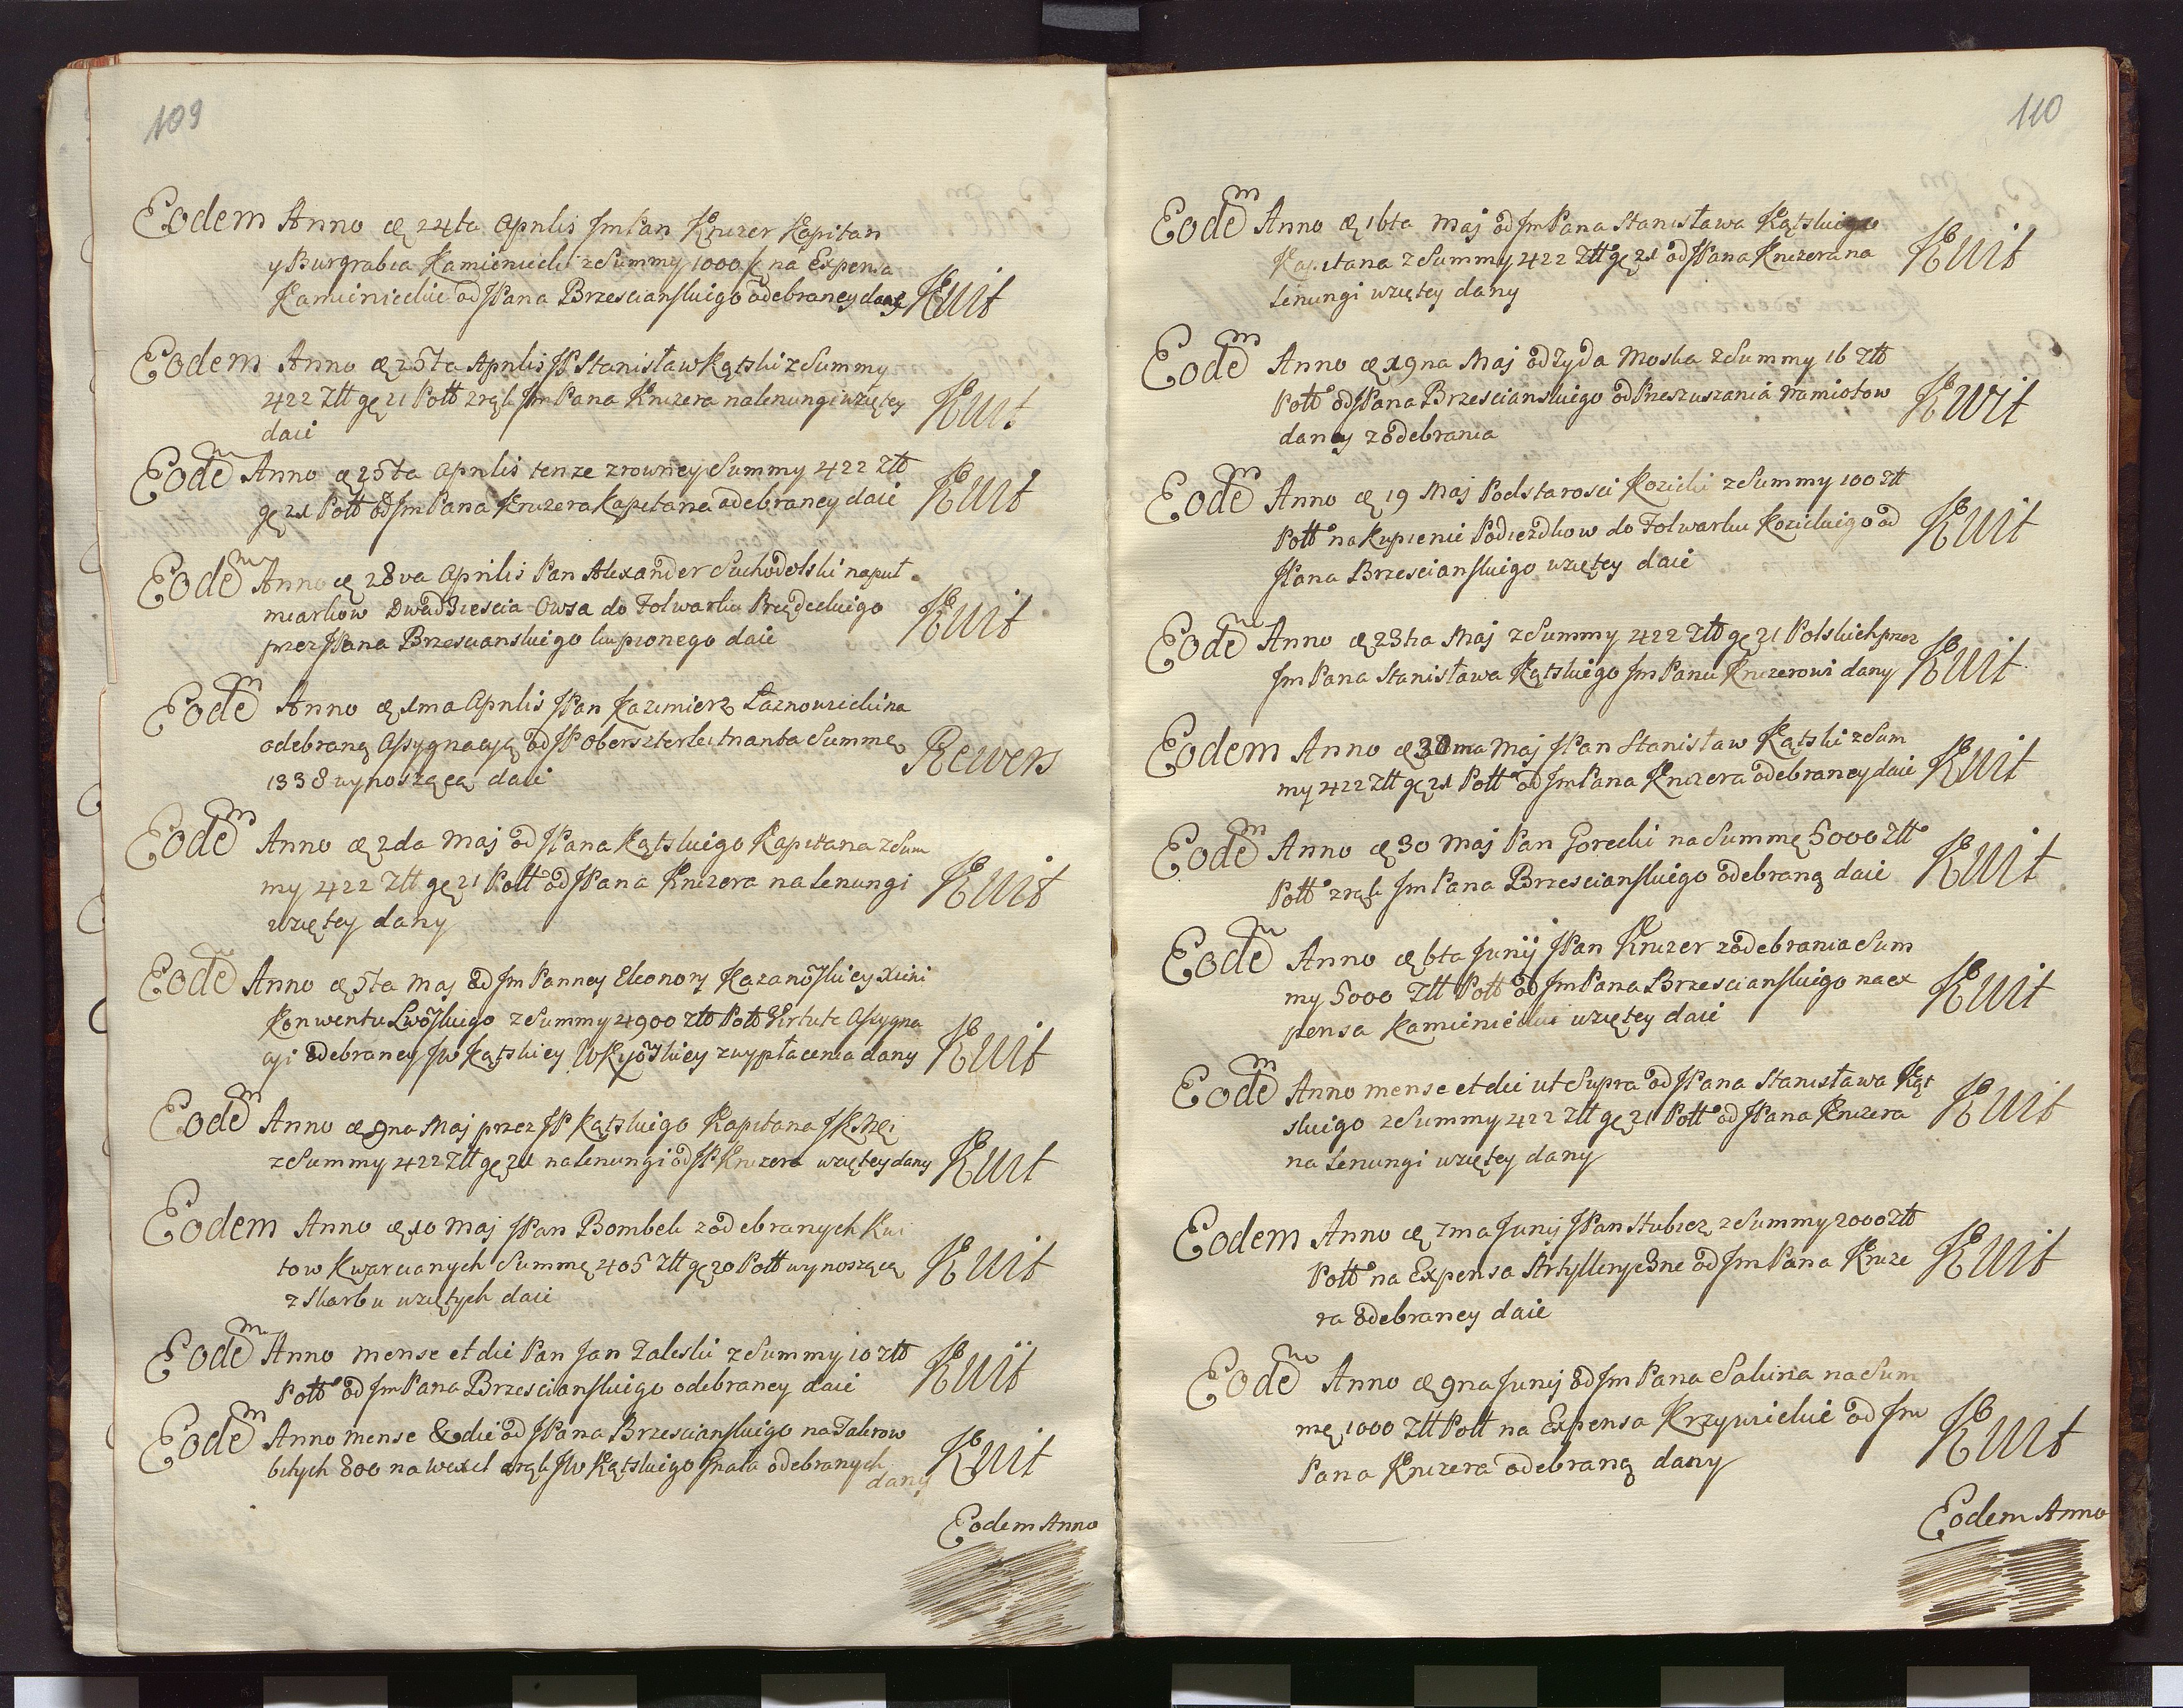 109
Eodem Anno æ 24ta Aprilis JmPan Kruzer Kapitan
y Burgrabia Kamieniecki z Summy 1000 na Expensa
Kamienieckie od JPana Brzescianskiego odebraney daie Kwit
Eodem Anno æ 25ta Aprilis JP Stanisław Kątski z Summy
422 Złł gę 21 Poll z rąk Jm Pana Kruzera na lenungi wziętey Kwit
daie
Eodem Anno æ 25ta Aprilis tenze z rowney Summy 422 Złł
gę 21 Poll od Jm Pana Kruzera Kapitana odebraney daie Kwit
Eodem Anno æ 28va Aprilis Pan Alexander Suchodolski na puł
miarkow Dwadziescia Owsa do Folwarku
przez JPana Brzescianskiego kupionego daie Kwit
Eodem Anno æ 1ma Aprilis JPan Kazimierz Łaznowicki na
odebraną Assygnacyą od JP Oberszterleitnanta Summę Rewers
1338 wynoszącą daie
Eodem Anno æ 2da Maj od JPana Kątskiego Kapitana z Sum
my 422 Złł gę 21 Poll od JPana Kruzera na lenungi Kwit
wziętey dany
Eodem Anno æ 5ta Maj od Jm Panney Eleonory Kazanowskiey Xieni
Konwentu Lwowskiego z Summy 4900 Złł Poll Virtute Assygna
cyi odebraney JW Kątskiey WKyowskiey z wypłacenia dany Kwit
Eodem Anno æ 9na Maj przez JP Kątskiego Kapitana
z Summy 422 Złł gę 21 na lenungi od JP Kruzera wziętey dany Kwit
Eodem Anno æ 10 Maj JPan Bombek z odebranych Kwi
tow Kwarcianych Summę 405 Złł gę 20 Poll wynoszącą Kwit
z Skarbu wziętych daie
Eodem Anno mense et die Pan Jan Zaleski z Summy 10 Złł
Poll od Jm Pana Brzescianskiego odebraney daie Kwit
Eodem Anno mense & die od JPana Brzescianskiego na Talerow
bitych 800 na wexel z rąk JW Kątskiego Gnała odebranych Kwit
dany
Eodem Anno
110
Eodem Anno æ 16ta Maj od Jm Pana Stanisława Kątskiego
Kapitana z Summy 422 Złł gę 21 od JPana Kruzera na Kwit
lenungi wziętey dany
Eodem Anno æ 19na Maj od Zyda Moska z Summy 16 Złł
Poll od JPana Brzescianskiego od Przeszuszania namiotow Kwit
daney z odebrania
Eodem Anno æ 19 Maj Podstarosci Kozicki z Summy 100 Złł
Poll na Kupienie Podiezdkow do Folwarku Kozickiego od Kwit
JPana Brzescianskiego wziętey daie
Eodem Anno æ 23tia Maj z Summy 422 Złł gę 21 Polskich przez
Jm Pana Stanisława Kątskiego Jm Panu Kruzerowi dany Kwit
Eodem Anno æ 30ma Maj JPan Stanisław Kątski z Sum
my 422 Złł gę 21 Poll od Jm Pana Kruzera odebraney daie Kwit
Eodem Anno æ 30 Maj Pan Gorecki na Summę 5000 Złł
Poll z rąk Jm Pana Brzescianskiego odebraną daie Kwit
Eodem Anno æ 6ta Junij JPan Kruzer z odebrania Sum
my 5000 Złł Poll od Jm Pana Brzescianskiego na ex Kwit
pensa Kamienieckie wziętey daie
Eodem Anno mense et die ut Supra od JPana Stanisława Kąt
skiego z Summy 422 Złł gę 21 Poll od JPana Kruzera Kwit
na lenungi wziętey dany
Eodem Anno æ 7ma Junij JPan Stubicz z Summy 2000 Złł
Poll na Expensa Artylleryczne od Jm Pana Kruze Kwit
ra odebraney daie
Eodem Anno æ 9na Junij od Jm Pana Sakina na Sum
mę 1000 Złł Poll na Expensa Krzywickie od Jm Kwit
Pana Kruzera odebraną dany
Eodem Anno